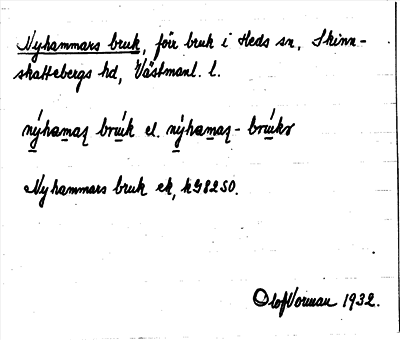 Nyhammars bruk, förr bruk i Heds sn, Skinn-
skattebergs hd, Västmanl. l.
nýhamaʂ brúk el. nýhamaʂ-brúkɛr
Nyhammars bruk ek, kG8250.
Olof Vorman 1932.